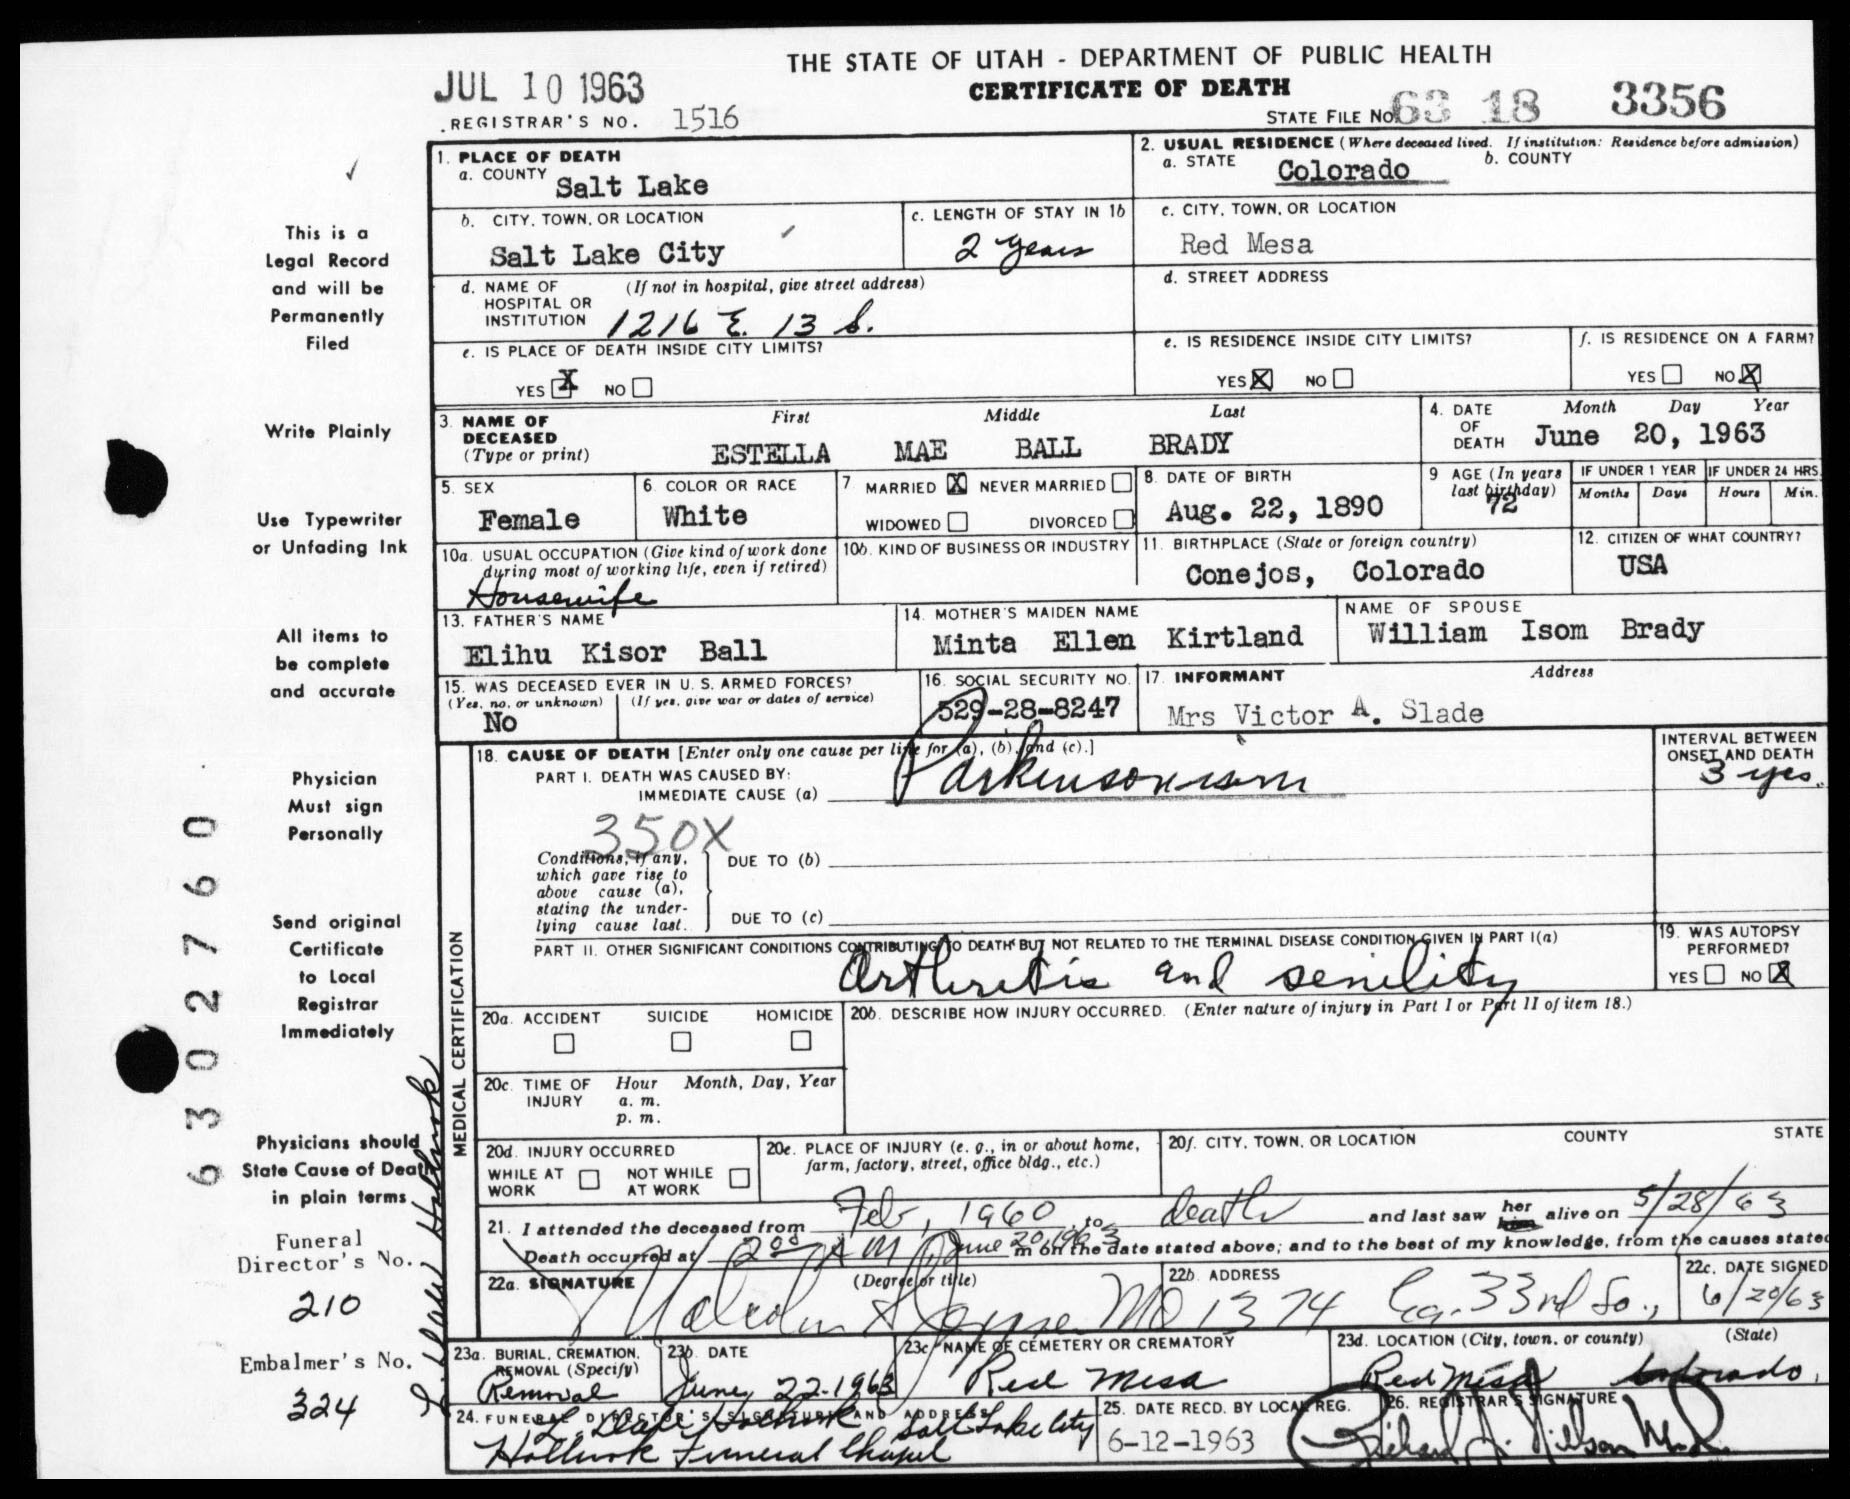 THE STATE OF UTAH - DEPARTMENT OF PUBLIC HEALTH
JUL 10 1963
CERTIFICATE OF DEATH
REGISTRAR'S NO. 1516
STATE FILE NO. 63 18 3356
1. PLACE OF DEATH
a. COUNTY Salt Lake
2. USUAL RESIDENCE (Where deceased lived. If institution: Residence before admission)
a. STATE Colorado b. COUNTY
b. CITY, TOWN, OR LOCATION
Salt Lake City
c. LENGTH OF STAY IN 1b
2 years
c. CITY, TOWN, OR LOCATION
Red Mesa
d. NAME OF HOSPITAL OR INSTITUTION (If not in hospital, give street address)
1216 E. 13 S.
d. STREET ADDRESS
e. IS PLACE OF DEATH INSIDE CITY LIMITS?
YES X NO
e. IS RESIDENCE INSIDE CITY LIMITS?
YES X NO
f. IS RESIDENCE ON A FARM?
YES NO X
3. NAME OF DECEASED (Type or print)
First Middle Last
ESTELLA MAE BALL BRADY
4. DATE OF DEATH Month Day Year
June 20, 1963
5. SEX
Female
6. COLOR OR RACE
White
7 MARRIED X NEVER MARRIED
WIDOWED DIVORCED
8. DATE OF BIRTH
Aug. 22, 1890
9 AGE (In years last birthday)
72
IF UNDER 1 YEAR
Months Days
IF UNDER 24 HRS.
Hours Min.
10a. USUAL OCCUPATION (Give kind of work done during most of working life, even if retired)
Housewife
10b. KIND OF BUSINESS OR INDUSTRY
11. BIRTHPLACE (State or foreign country)
Conejos, Colorado
12. CITIZEN OF WHAT COUNTRY?
USA
13. FATHER'S NAME
Elihu Kisor Ball
14. MOTHER'S MAIDEN NAME
Minta Ellen Kirtland
NAME OF SPOUSE
William Isom Brady
15. WAS DECEASED EVER IN U. S. ARMED FORCES?
(Yes, no, or unknown) (If yes, give war or dates of service)
No
16. SOCIAL SECURITY NO.
529-28-8247
17. INFORMANT Address
Mrs Victor A. Slade
MEDICAL CERTIFICATION
18. CAUSE OF DEATH [Enter only one cause per line for (a), (b), and (c).]
PART I. DEATH WAS CAUSED BY:
IMMEDIATE CAUSE (a) Parkinsonism
INTERVAL BETWEEN ONSET AND DEATH
3 yrs.
350X
Conditions, if any, which gave rise to above cause (a), stating the under-lying cause last.
DUE TO (b)
DUE TO (c)
PART II. OTHER SIGNIFICANT CONDITIONS CONTRIBUTING TO DEATH BUT NOT RELATED TO THE TERMINAL DISEASE CONDITION GIVEN IN PART I(a)
Arthritis and senility
19. WAS AUTOPSY PERFORMED?
YES NO X
20a. ACCIDENT SUICIDE HOMICIDE
20b. DESCRIBE HOW INJURY OCCURRED. (Enter nature of injury in Part I or Part II of item 18.)
20c. TIME OF INJURY Hour Month, Day, Year
a. m.
p. m.
20d. INJURY OCCURRED
WHILE AT WORK NOT WHILE AT WORK
20e. PLACE OF INJURY (e. g., in or about home, farm, factory, street, office bldg., etc.)
20f. CITY, TOWN, OR LOCATION COUNTY STATE
21. I attended the deceased from Feb, 1960 to death and last saw her him alive on 5/28/63
Death occurred at 2 00 A M June 20, 1963 m on the date stated above; and to the best of my knowledge, from the causes stated
22a. SIGNATURE (Degree or title)
Malcolm MD
22b. ADDRESS
1374 Ea. 33rd So.,
22c. DATE SIGNED
6/20/63
23a. BURIAL, CREMATION, REMOVAL (Specify)
Removal
23b. DATE
June 22-1963
23c NAME OF CEMETERY OR CREMATORY
Red Mesa
23d. LOCATION (City, town, or county) (State)
Red Mesa Colorado,
24. FUNERAL DIRECTOR'S SIGNATURE AND ADDRESS
Holbrook Salt Lake City
Holbrook Funeral Chapel
25. DATE RECD. BY LOCAL REG.
6-12-1963
26. REGISTRAR'S SIGNATURE
Richard Nielson M.D.
This is a
Legal Record
and will be
Permanently
Filed
Write Plainly
Use Typewriter
or Unfading Ink
All items to
be complete
and accurate
Physician
Must sign
Personally
Send original
Certificate
to Local
Registrar
Immediately
Physicians should
State Cause of Death
in plain terms
Funeral
Director's No.
210
Embalmer's No.
324
6302760
Holbrook